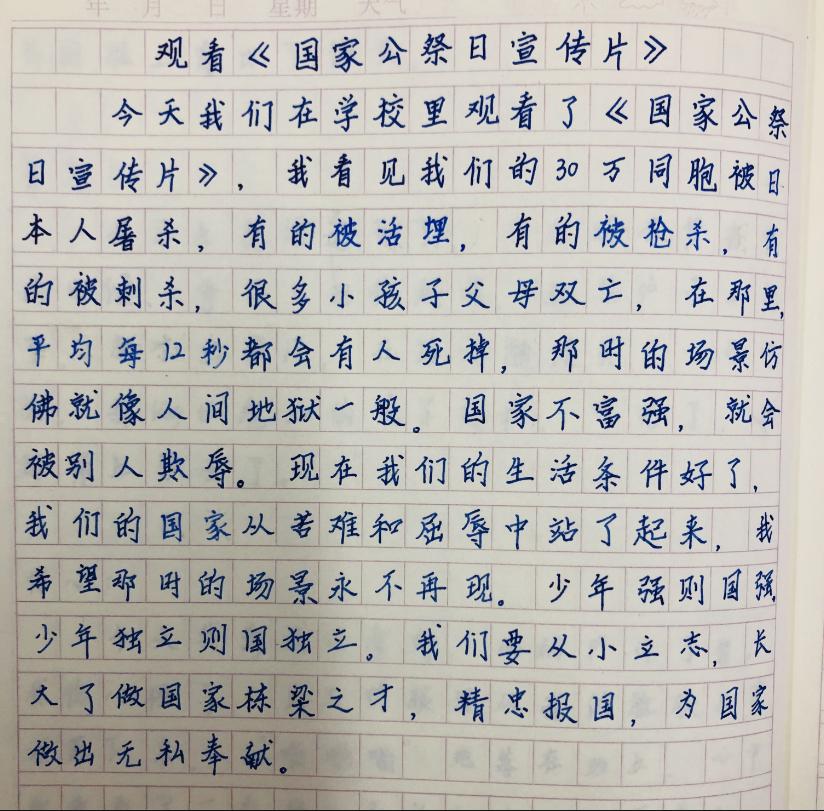 年 月 日 星期 天气
观看《国家公祭日宣传片》
今天我们在学校里观看了《国家公祭
日宣传片》，我看见我们的30万同胞被日
本人屠杀，有的被活埋，有的被枪杀，有
的被刺杀，很多小孩子父母双亡，在那里，
平均每12秒都会有人死掉，那时的场景仿
佛就像人间地狱一般。国家不富强，就会
被别人欺辱。现在我们的生活条件好了，
我们的国家从苦难和屈辱中站了起来，我
希望那时的场景永不再现。少年强则国强，
少年独立则国独立。我们要从小立志，长
大了做国家栋梁之才，精忠报国，为国家
做出无私奉献。